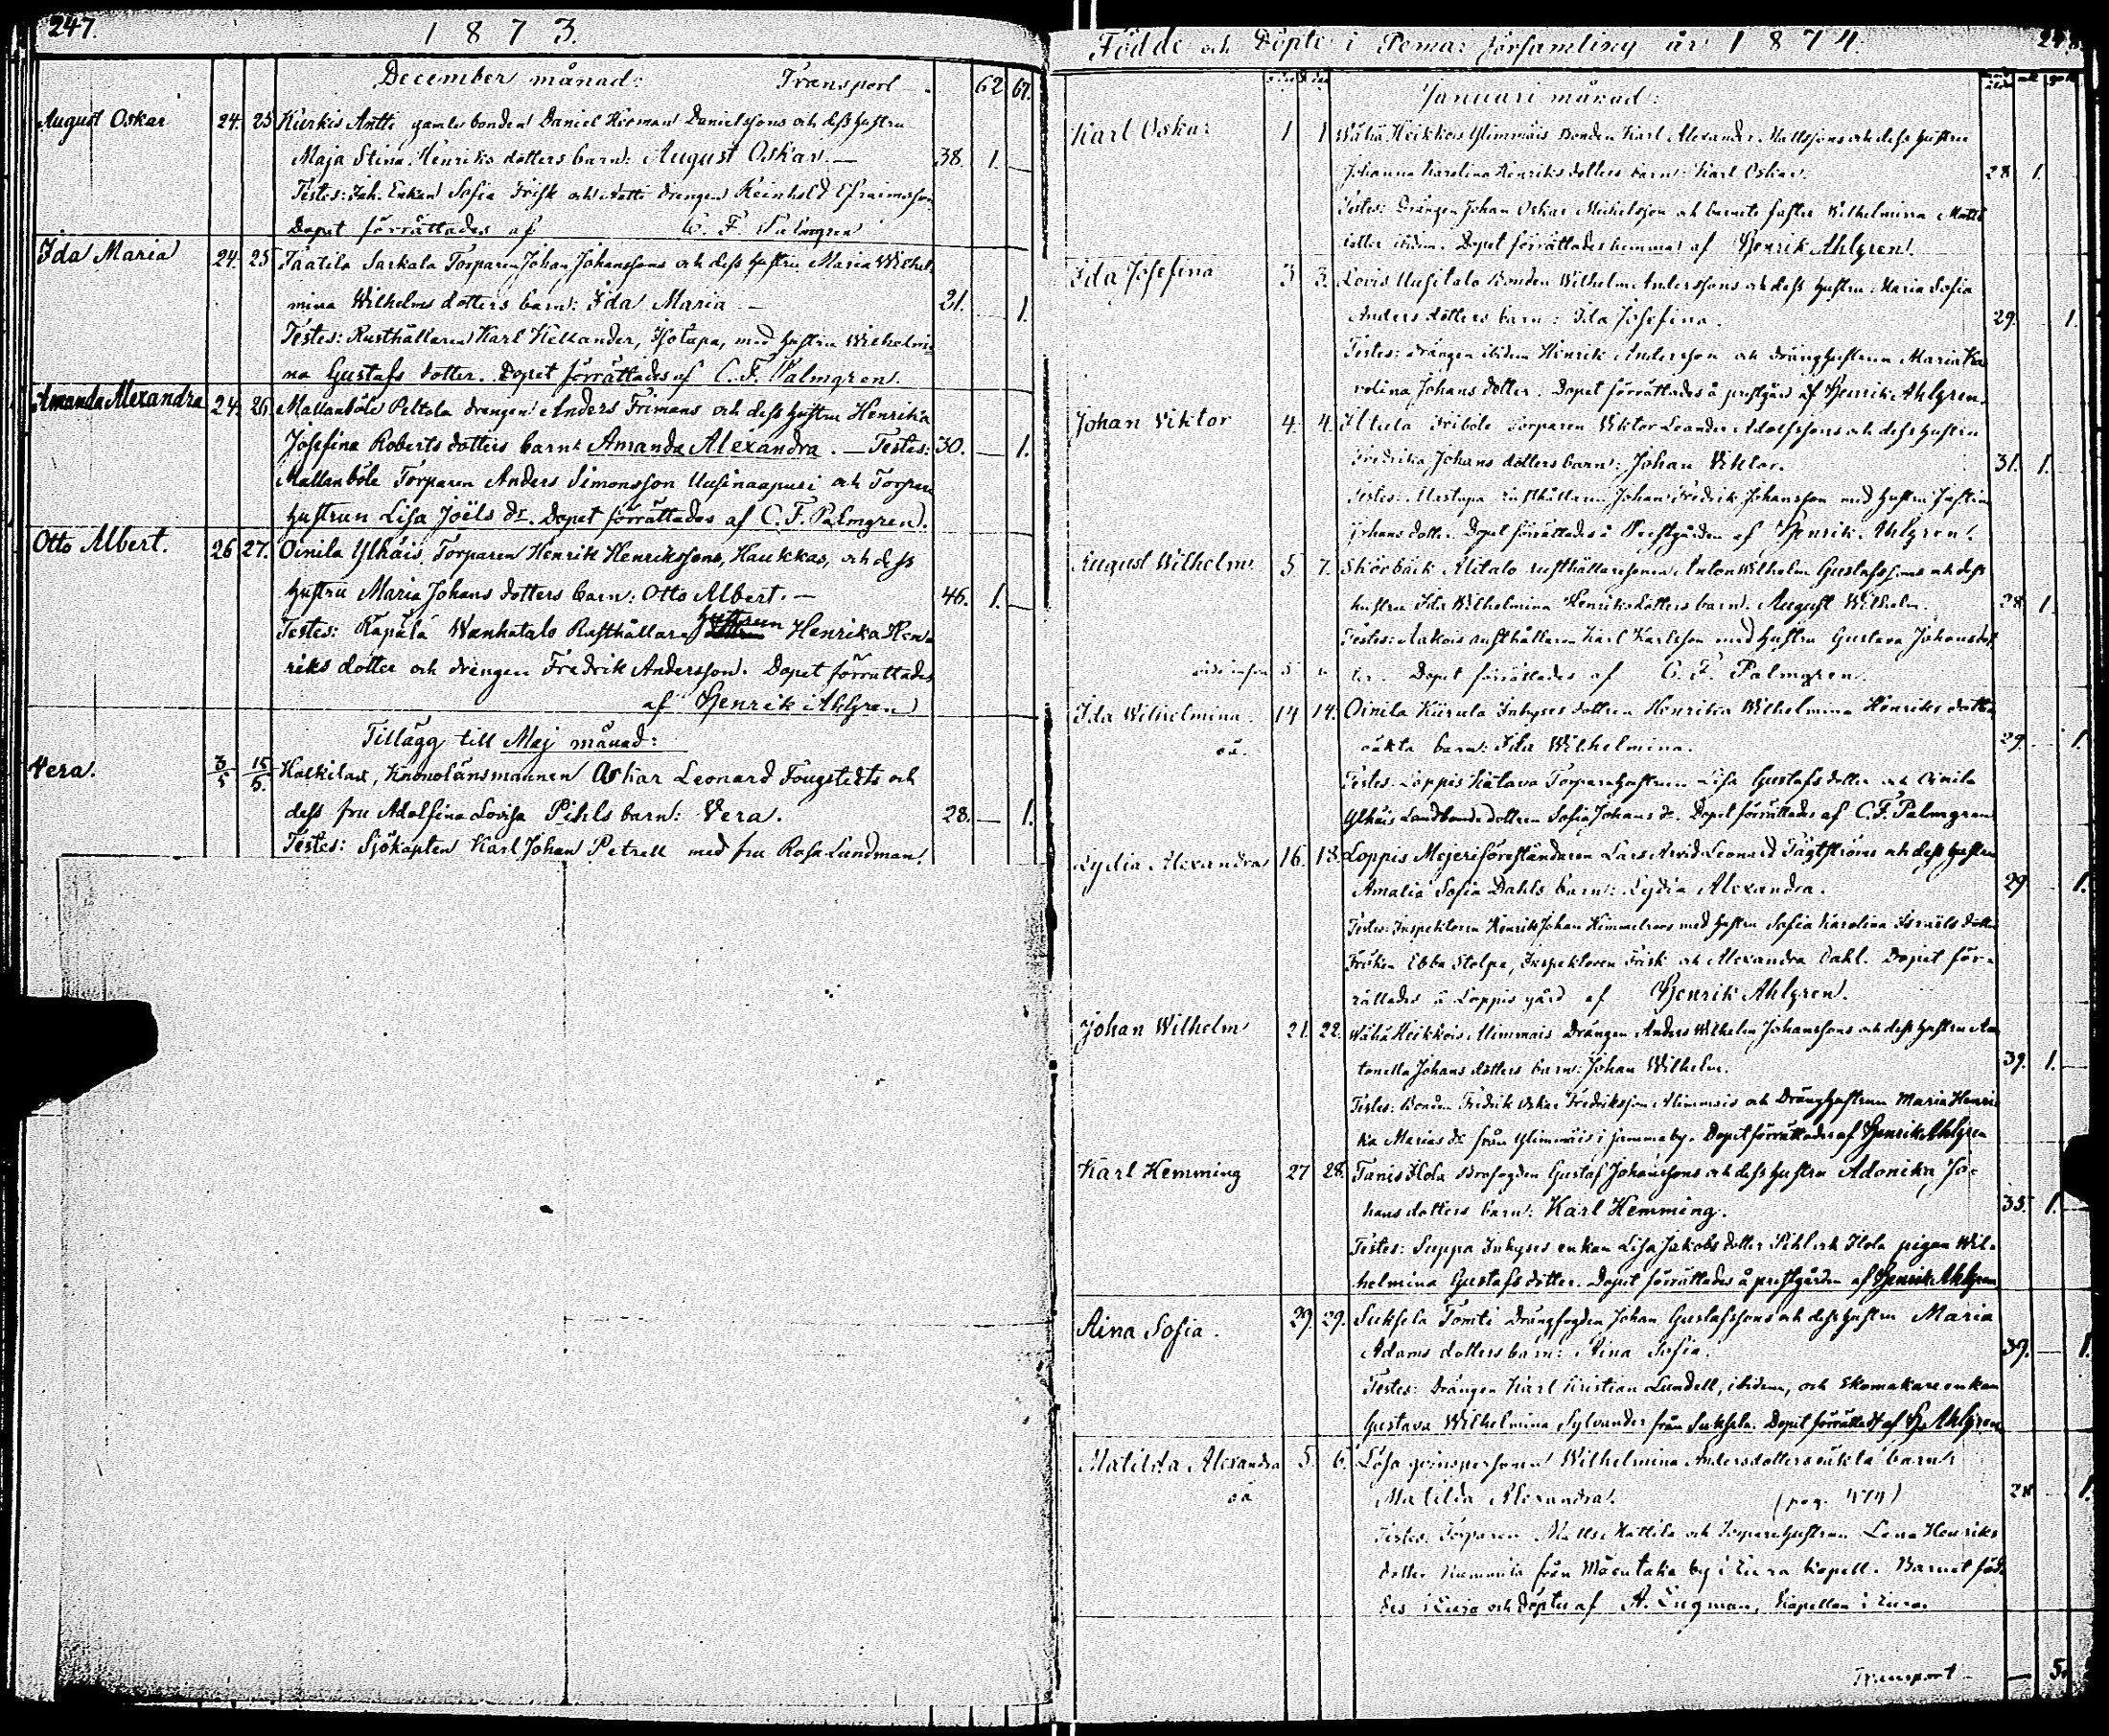 247.
1873.
December månad: Transport 62 67.
August Oskar 24. 25 Kurkis Antti gamle bonden Daniel Danielssons och dess hustru
Maja Stina Henriks dotters barn: August Oskar. — 38. 1. —
Testes: Enkan Sofia Frisk och Antti drengen Reinhold Efraimsson
Dopet förrättades af C. F. Palmgren
Ida Maria 24. 25 Taatila Sarkala Torparen Johan Johanssons och dess hustru Maria Wilhel-
mina Wilhelms dotters barn: Ida Maria — 21. 1.
Testes: Rusthållaren Karl Hellander, Isotapa, med hustru Wilhelmi-
na Gustafs dotter. Dopet förrättades af C. F. Palmgren.
Amanda Alexandra 24. 26. Mallanböle Peltola drengen Anders Frimans och dess hustru Henrika
Josefina Roberts dotters barn: Amanda Alexandra. — Testes: 30. — 1.
Mallanböle Torparen Anders Simonsson Uusinaapuri och Torpare
hustrun Lisa Joëls dr. Dopet förrättades af C. F. Palmgren.
Otto Albert. 26 27. Oinila Ylhäis Torparen Henrik Henrikssons, Haukkas, och dess
hustru Maria Johans dotters barn: Otto Albert. — 46. 1. —
Testes: Rapala Wanhatalo Rusthållare hustrun Henrika Hen-
riks dotter och drengen Fredrik Andersson. Dopet förrättades
af Henrik Ahlgren
Tillägg till Maj månad:
Vera. 3/5 15/5. Kalkilax, Kronolänsmannen Oskar Leonard Fougstedts och
dess fru Adolfina Lovisa Pihls barn: Vera. 28. — 1.
Testes: Sjökapten Karl Johan Petrell med fru Rosa Lundman.
Födde och Döpte i Pemar församling år 1874.
Januari månad:
Karl Oskar 1 1 Wähä Heikkois Ylimmäis Bonden Karl Alexander Mattssons och dess hustru
Johanna Karolina Henriks dotters barn: Karl Oskar. 28 1.
Testes: Drängen Johan Oskar Michelsson och barnets faster Wilhelmina Matts
dotter ibidem. Dopet förrättades hemma af Henrik Ahlgren.
Ida Josefina 3 3. Lovis Uusitalo Bonden Wilhelm Anderssons och dess hustru Maria Sofia
Anders dotters barn: Ida Josefina. 29. 1.
Testes: drängen ibidem Henrik Andersson och dränghustrun Maria Ka-
rolina Johans dotter. Dopet förrättades å prestgård af Henrik Ahlgren.
Johan Viktor 4. 4. Iltula Fribole Torparen Viktor Leander Adolfssons och dess hustru
Fredrika Johans dotters barn: Johan Viktor. 31. 1.
Testes: rusthållaren Johan Fredrik Johansson med hustru
Johans dotter. Dopet förrättades å Prestgården af Henrik Ahlgren.
August Wilhelm 5 7. Skörbäck Alitalo rusthållaresonen Anton Wilhelm Gustafssons och dess
hustru Ida Wilhelmina Henriks dotters barn: August Wilhelm. 28 1.
Testes: rusthållaren Karl Karlsson med hustru Gustava Johansdot-
ter. Dopet förrättades af C. F. Palmgren.
Ida Wilhelmina. 14 14. Oinila Kiirula Inhyses dottren Henrika Wilhelmina Henriks dotters
oä. oäkta barn: Ida Wilhelmina. 29. 1.
Testes: Loppis Torparehustrun Lisa Gustafs dotter och Oinila
Ylhäis Landbonde dottren Sofia Johans dr. Dopet förrättades af C. F. Palmgren
Lydia Alexandra 16. 18. Loppis Mejeriföreståndaren Lars Arvid Leonard Tägtströms och dess hustru
Amalia Sofia Dahls barn: Lydia Alexandra. 29 1.
Testes: Inspektoren Henrik Johan Himmelroos med hustru Sofia Karolina Israels dotter
Fröken Ebba Stolpe, Inspektoren Frisk och Alexandra Dahl. Dopet för-
rättades å Loppis gård af Henrik Ahlgren.
Johan Wilhelm 21. 22. Wähä Heikkois Alimmais Drängen Anders Wilhelm Johanssons och dess hustru An-
tonella Johans dotters barn: Johan Wilhelm. 39. 1.
Testes: Bonden Fredrik Oskar Fredriksson Alimmais och Dränghustrun Maria Henri-
ka Marias dr från Ylimmäis i samma by. Dopet förrättades af Henrik Ahlgren
Karl Hemming 27 28. Tanis Ilola Brofogden Gustaf Johanssons och dess hustru Adonika Jo-
hans dotters barn: Karl Hemming. 35. 1.
Testes: Suppa Inhyses enkan Lisa Jakobs dotter Pihl och Ilola pigan Wil-
helmina Gustafs dotter. Dopet förrättades å prestgården af Henrik Ahlgren
Aina Sofia. 29. 29. Suksela Tomti Drängfogden Johan Gustafssons och dess hustru Maria
Adams dotters barn: Aina Sofia. 39. 1.
Testes: Drängen Karl Kristian Lundell, ibidem, och Skomakare enkan
Gustava Wilhelmina Sylvander från Suksela. Dopet förrättadt af H. Ahlgren
Matilda Alexandra 5. 6. Lösa qvinspersonen Wilhelmina Andersdotters oäkta barn:
oä Matilda Alexandra. 28 1.
Testes: Torparen Matts Mattila och Torparehustrun Lena Henriks
dotter från by i Eura Kapell. Barnet föd-
des i Eura och döptes af A. Lugman, Kapellan i Eura.
Transport — 5.